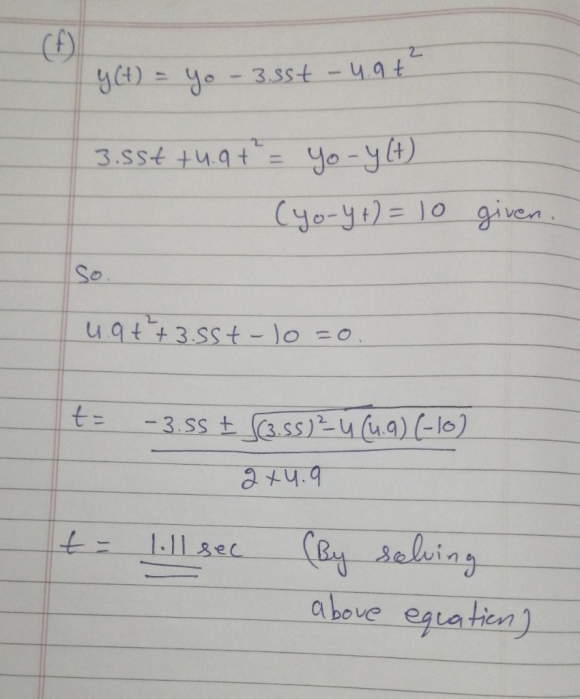 (f)
y(t) = y0 - 3.55t - 4.9t²
3.55t + 4.9t² = y0 - y(t)
(y0-yt) = 10 given.
So.
4.9t² + 3.55t - 10 = 0.
t = -3.55 ± √(3.55)² - 4(4.9)(-10)
2×4.9
t = 1.11 sec (By solving
above equation)